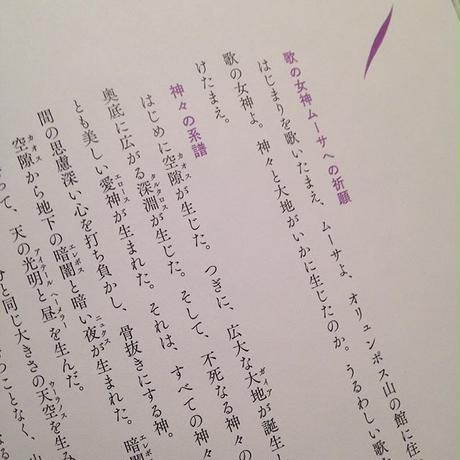 歌の女神ムーサへの祈願
はじまりを歌いたまえ、ムーサよ、オリュンポス山の館に住
歌の女神よ。神々と大地がいかに生じたのか。うるわしい歌
けたまえ。
神々の系譜
はじめに空隙カオスが生じた。つぎに、広大な大地ガイアが誕生し
奥底に広がる深淵タルタロスが生じた。そして、不死なる神々の
とも美しい愛神エロースが生まれた。それは、すべての神々
間の思慮深い心を打ち負かし、骨抜きにする神。
空隙カオスから地下の暗闇エレボスと暗い夜ニュクスが生まれた。暗闇エレボス
って、天の光明アイテールと昼ヘーメラーを生んだ。
ひと同じ大きさの天空ウーラノスを生み
ことなく、山